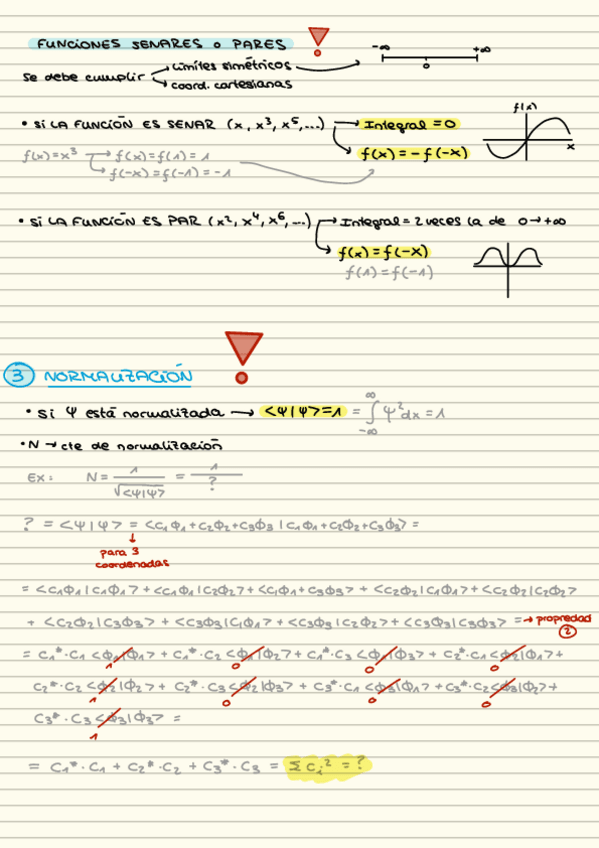 FUNCIONES SENARES o PARES
Se debe cumplir → Límites simétricos → -∞ 0 +∞
→ coord. cartesianas
• SI LA FUNCIÓN ES SENAR (x, x³, x⁵,...) → Integral = 0
→ f(x) = - f(-x)
f(x)
x
f(x)=x³ → f(x)=f(1)=1
→ f(-x)=f(-1)=-1
• SI LA FUNCIÓN ES PAR (x², x⁴, x⁶,...) → Integral = 2 veces la de 0→+∞
→ f(x)=f(-x)
f(1)=f(-1)
3 NORMALIZACIÓN
• Si Ψ está normalizada → <Ψ|Ψ>=1 = ∫_{-∞}^{∞} Ψ²dx = 1
• N → cte de normalización
Ex: N = 1/√<Ψ|Ψ> = 1/?
? = <Ψ|Ψ> = <C₁Φ₁+C₂Φ₂+C₃Φ₃|C₁Φ₁+C₂Φ₂+C₃Φ₃> =
↓
para 3
coordenadas
= <C₁Φ₁|C₁Φ₁> + <C₁Φ₁|C₂Φ₂> + <C₁Φ₁+C₃Φ₃> + <C₂Φ₂|C₁Φ₁> + <C₂Φ₂|C₂Φ₂>
+ <C₂Φ₂|C₃Φ₃> + <C₃Φ₃|C₁Φ₁> + <C₃Φ₃|C₂Φ₂> + <C₃Φ₃|C₃Φ₃> = → propiedad
2
= C₁*·C₁<Φ₁|Φ₁> + C₁*·C₂<Φ₁|Φ₂> + C₁*·C₃<Φ₁|Φ₃> + C₂*·C₁<Φ₂|Φ₁> +
1 0 0 0
C₂*·C₂<Φ₂|Φ₂> + C₂*·C₃<Φ₂|Φ₃> + C₃*·C₁<Φ₃|Φ₁> + C₃*·C₂<Φ₃|Φ₂> +
1 0 0 0
C₃*·C₃<Φ₃|Φ₃> =
1
= C₁*·C₁ + C₂*·C₂ + C₃*·C₃ = Σcᵢ² = ?